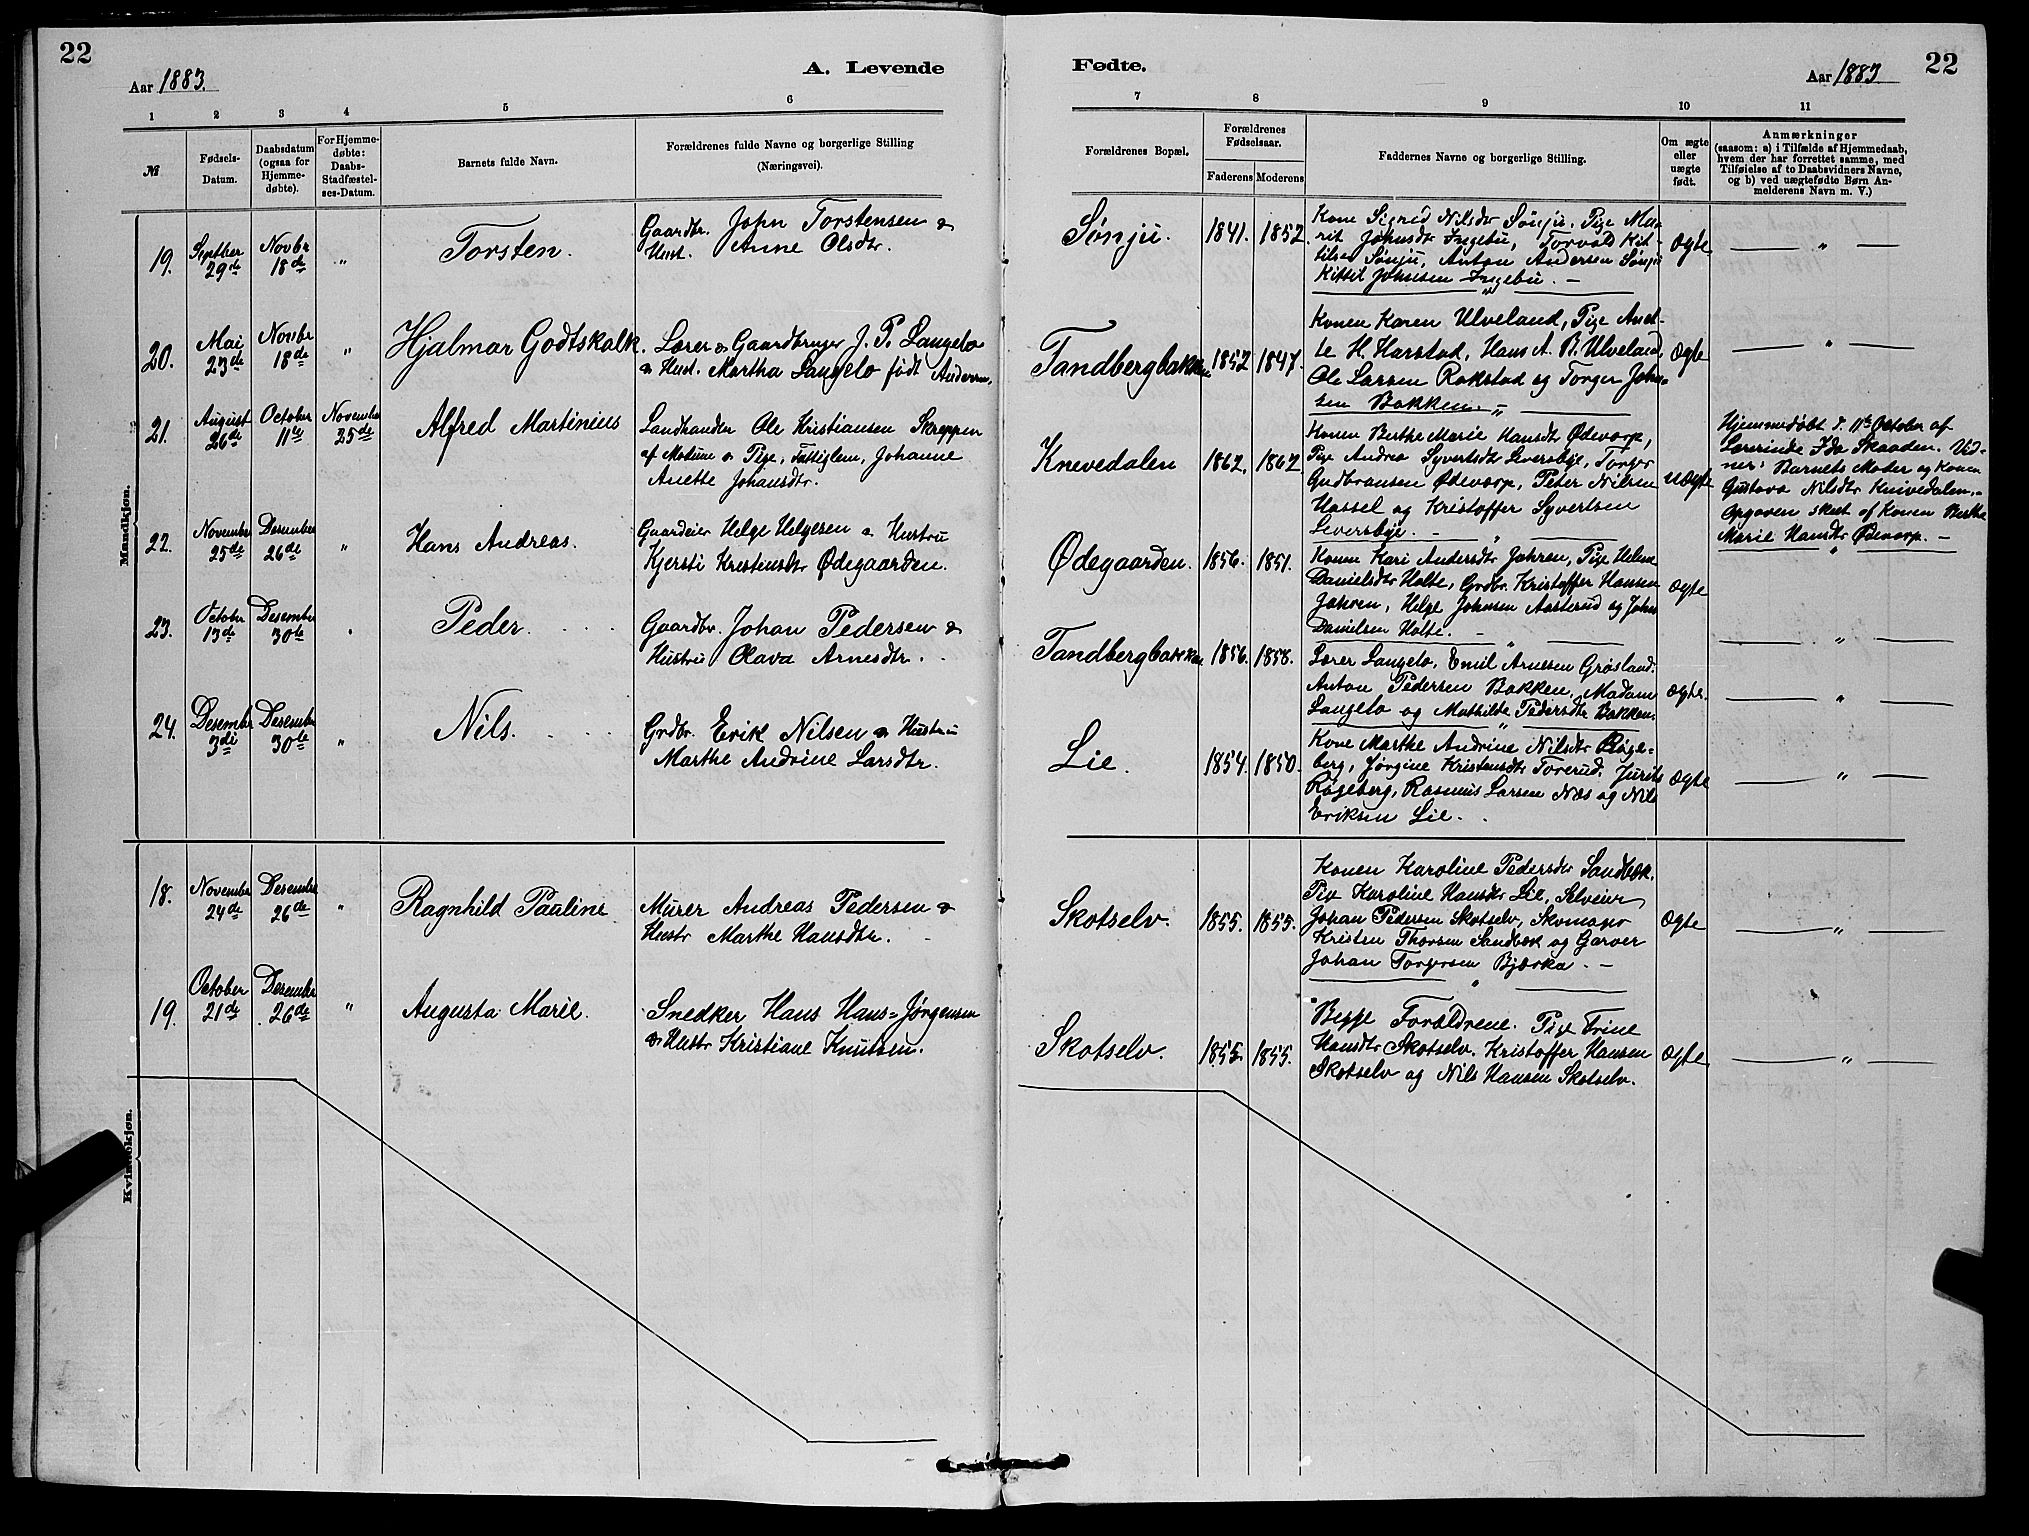 22
Aar 1883.
A. Levende
1 2 3 4 5 6
No
Fødsels-Datum.
Daabsdatum (ogsaa for Hjemme-døbte).
For Hjemme-døbte: Daabs-Stadfæstel-ses-Datum.
Barnets fulde Navn.
Forældrenes fulde Navne og borgerlige Stilling (Næringsvei).
Mandkjøn.
19. Septber 29de Novbr 18de " Torsten.
Gaardbr. John Torstensen &
Hust. Anne Olsdtr.
20. Mai 23de Novbr 18de " Hjalmar Godtskalk.
Lærer & Gaardbruger J. P. Langelo
& Hust. Martha Langelo født Andersen.
21. August 26de October 11te November 25de Alfred Martinius
Landhandler Ole Kristiansen Skreppen
af Modum & Pige, Fattiglem, Johanne
Anette Johansdtr.
22. November 25de Desember 26de " Hans Andreas.
Gaardeier Helge Helgesen & Hustru
Kjersti Kristensdtr Ødegaarden.
23. October 13de Desember 30te " Peder.
Gaardbr. Johan Pedersen &
Hustru Olava Arnesdtr.
24. Desember 3die Desember 30te " Nils.
Grdbr. Erik Nilsen & Hustru
Marthe Andrine Larsdtr.
Kvindekjøn.
18. November 24de Desember 26de " Ragnhild Pauline
Murer Andreas Pedersen &
Hustr Marthe Hansdtr.
19. October 21de Desember 26de " Augusta Marie.
Snedker Hans Hans=Jørgensen
& Hustr Kristiane Knutsen.
Fødte.
Aar 1883
22
7 8 9 10 11
Forældrenes Bopæl.
Forældrenes Fødselsaar.
Faderens Moderens
Faddernes Navne og borgerlige Stilling.
Om ægte eller uægte født.
Anmærkninger
(saasom: a) i Tilfælde af Hjemmedaab,
hvem der har forrettet samme, med
Tilføielse af to Daabsvidners Navne,
og b) ved uægtefødte Børn An-
melderens Navn m. V.)
Sønju. 1841. 1852.
Kone Sigrid Nilsdtr Sønju, Pige Ma-
rit Johnsdtr Ingebu, Torvald Kit-
tilsen Sønju, Anton Andersen Sønju
Kittil Johnsen Ingebu. —
Ægte "
Tandbergbakken 1852 1847.
Konen Karen Ulveland, Pige Anet-
te H. Harstad, Hans A. B. Ulveland,
Ole Larsen Rakstad og Torger John-
sen Bakken. "
Ægte "
Knevedalen 1862. 1862
Konen Berthe Marie Hansdtr Ødevarp,
Pige Andrea Syvertsdtr Leversbye, Torger
Gudbransen Ødevarp, Peter Nilsen
Hassel og Kristoffer Syvertsen
Leversbye. —
uægte
Hjemmedøbt d. 11te October af
Lærerinde Ida Skaaden. Vid-
ner: Barnets Moder og Konen
Gustava Nilsdtr Knivedalen.-
Opgaven skeet af Konen Berthe
Marie Hansdtr Ødevarp. —
Ødegaarden. 1856. 1851.
Konen Kari Andersdtr Jahren, Pige Helene
Danielsdtr Holte, Grdbr. Kristoffer Hansen
Jahren, Helge Johnsen Aasterud og John
Danielsen Holte. —
Ægte
Tandbergbakken 1856. 1858.
Lærer Langelo, Emil Arnesen Grøsland,
Anton Pedersen Bakken, Madam
Langelo og Mathilde Pedersdtr Bakken.
Ægte. "
Lie. 1854. 1850.
Kone Marthe Andrine Nilsdtr Røge-
berg, Jørgine Kristensdtr Torerud,
Røgeberg, Rasmus Larsen Næs og Nils
Eriksen Lie.
Ægte "
Skotselv. 1855. 1855.
Konen Karoline Pedersdtr Sandbæk.
Pig Karoline Hansdtr Lie, Selveier
Johan Pedersen Skotselv, Skomager
Kristen Thorsen Sandbæk og Garver
Johan Torgersen Bjærka. —
Ægte "
Skotselv. 1855. 1855.
Begge Forældrene. Pige Trine
Hansdtr Skotselv. Kristoffer Hansen
Skotselv og Nils Hansen Skotselv.
Ægte "